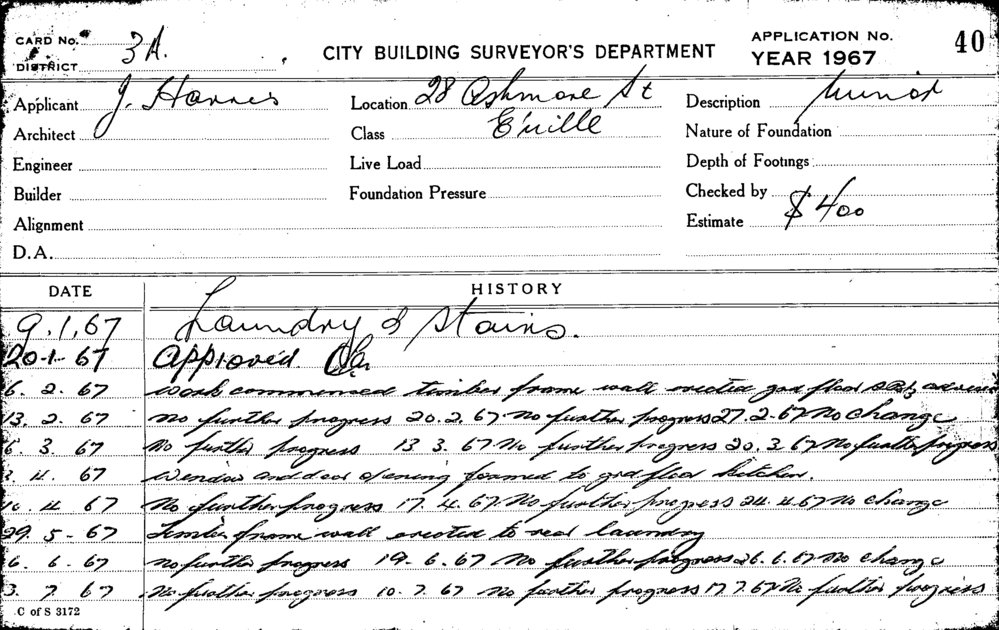 CARD No. 3A.
DISTRICT
CITY BUILDING SURVEYOR'S DEPARTMENT
APPLICATION No. 40
YEAR 1967
Applicant J. Harris
Location 28 Ashmore St
Description Minor
Architect
Class E'ville
Nature of Foundation
Engineer
Live Load
Depth of Footings
Builder
Foundation Pressure
Checked by
Alignment
Estimate $400
D.A.
DATE HISTORY
9.1.67 Laundry & Stairs.
20-1-67 Approved
6. 2. 67 Work commenced timber frame wall erected grd floor
13. 2. 67 No further progress 20.2.67 No further progress 27.2.67 No change
6. 3. 67 No further progress 13 3. 67 No further progress 20.3.67 No further progress
3. 4. 67 Window and door opening formed to grd floor kitchen.
10. 4 67 No further progress 17. 4. 67. No further progress 24.4.67 No change
29. 5-67 Timber frame wall erected to rear laundry
6. 6. 67 No further progress 19-6.67 No further progress 26.6.67 No change
3. 7 67 No further progress 10.7.67 No further progress 17.7.67 No further progress
C of S 3172